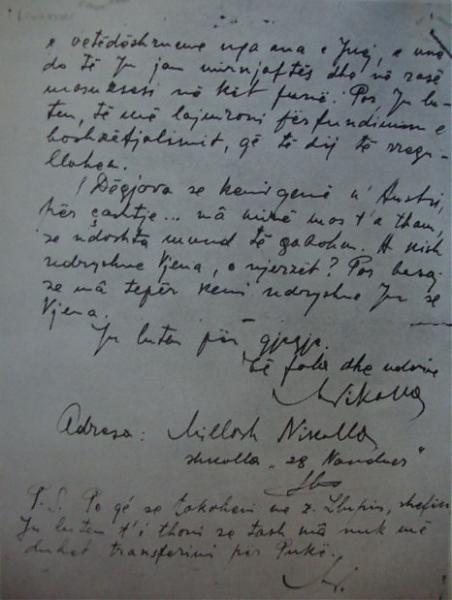 e vetëdëshrueme nga ana e Juej, e unë
do të Ju jem mirënjoftës dhe në rasë
mossuksesi në kët punë. Por, Ju lu-
tem, të më lajmroni përfundimin e
bashkëfjalimit, që të dij të rregu-
llohem.
! Dëgjova se keni qenë n' Austri,
për çashtje... mâ mirë mos t'a tham,
se ndoshta mund të gabohem. A kish
ndryshue Vjena, o njerzët? Por besoj
se mâ tepër keni ndryshue Ju se
Vjena.
Ju lutem për gjegje.
Të fala dhe nderime
M Nikolla
Adresa: Millosh Nikolla
shkolla „28 Nanduer"
P.S. Po qé se takoheni me z. shefin
Ju lutem t'i thoni se tash mâ nuk më
duhet transferimi për Pukë.